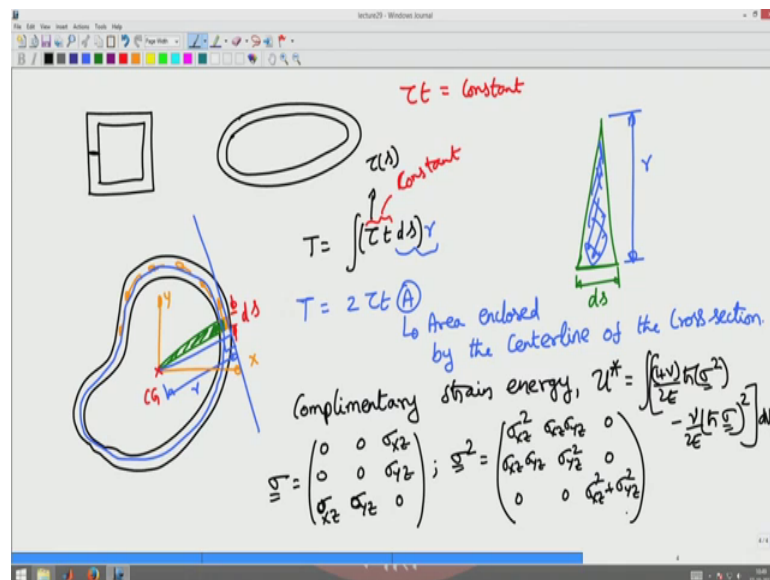 lecture29 - Windows Journal
File Edit View Insert Actions Tools Help
Page Width
B
τt = Constant
τ(s)
Constant
T = ∫(τ t ds) r
r
ds
T = 2 τt Ⓐ
↳ Area enclosed
by the Centerline of the Cross section.
y
x
CG
r
t
ds
Complimentary strain energy, U* = ∫[(1+ν)/2E tr(σ²)
- ν/2E (tr σ)²] dV
σ = (0 0 σxz; 0 0 σyz; σxz σyz 0) ; σ² = (σxz² σxzσyz 0; σxzσyz σyz² 0; 0 0 σxz²+σyz²)
4/4